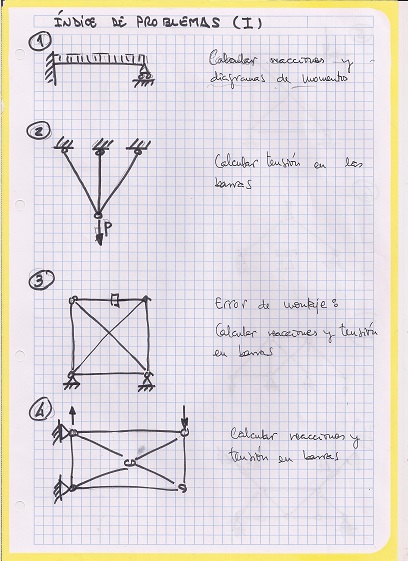 ÍNDICE DE PROBLEMAS (I)
1
Calcular reacciones y
diagramas de momento
2
Calcular tensión en las
barras
P
3
Error de montaje:
Calcular reacciones y tensión
en barras
4
Calcular reacciones y
tensión en barras